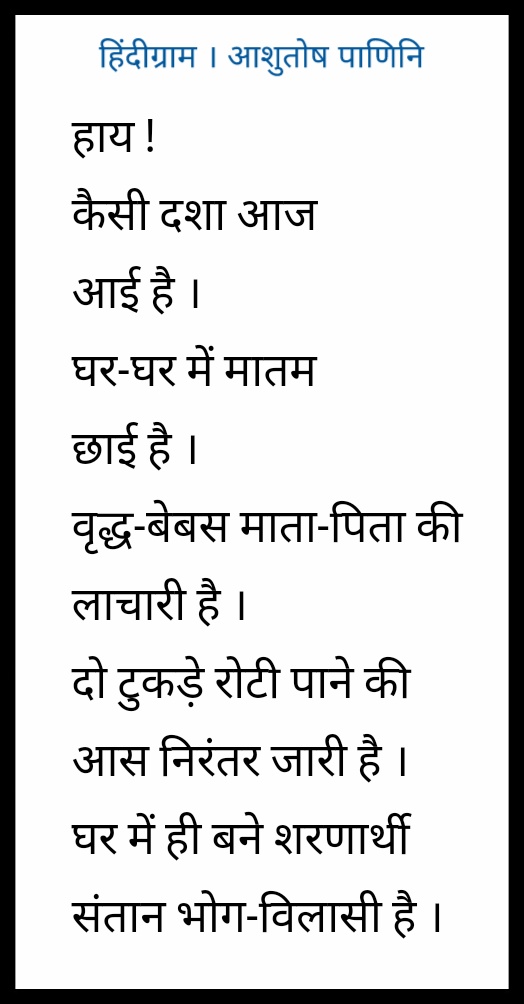 हिंदीग्राम । आशुतोष पाणिनि
हाय !
कैसी दशा आज
आई है ।
घर-घर में मातम
छाई है ।
वृद्ध-बेबस माता-पिता की
लाचारी है ।
दो टुकड़े रोटी पाने की
आस निरंतर जारी है ।
घर में ही बने शरणार्थी
संतान भोग-विलासी है ।